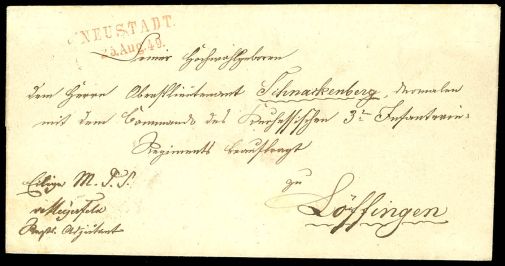 NEUSTADT.
25.Aug.49.
Seiner Hochwohlgeboren
dem Herrn Oberstlieutenant Schnackenberg, dermalen
mit dem Commando des Kurhessischen 3n Infanterie-
Regiments beauftragt
zu
Löffingen
Eilige M. D. S.
Regts. Adjutant